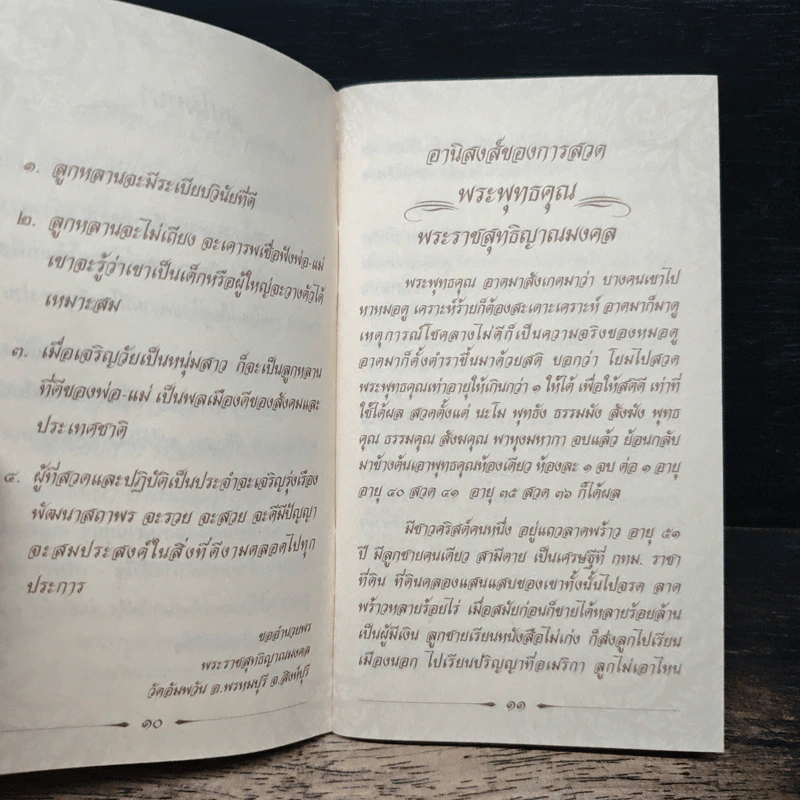 ๑. ลูกหลานจะมีระเบียบวินัยที่ดี
๒. ลูกหลานจะไม่เถียง จะเคารพเชื่อฟังพ่อ-แม่
เขาจะรู้ว่าเขาเป็นเด็กหรือผู้ใหญ่จะวางตัวได้
เหมาะสม
๓. เมื่อเจริญวัยเป็นหนุ่มสาว ก็จะเป็นลูกหลาน
ที่ดีของพ่อ-แม่ เป็นพลเมืองดีของสังคมและ
ประเทศชาติ
๔. ผู้ที่สวดและปฏิบัติเป็นประจำจะเจริญรุ่งเรือง
พัฒนาสถาพร จะรวย จะสวย จะดีมีปัญญา
จะสมประสงค์ในสิ่งที่ดีงามตลอดไปทุก
ประการ
ขออำนวยพร
พระราชสุทธิญาณมงคล
วัดอัมพวัน อ.พรหมบุรี จ.สิงห์บุรี
๑๐
อานิสงส์ของการสวด
พระพุทธคุณ
พระราชสุทธิญาณมงคล
พระพุทธคุณ อาตมาสังเกตมาว่า บางคนเขาไป
หาหมอดู เคราะห์ร้ายก็ต้องสะเดาะเคราะห์ อาตมาก็มาดู
เหตุการณ์โชคลางไม่ดีก็เป็นความจริงของหมอดู
อาตมาก็ตั้งตำราขึ้นมาด้วยสติ บอกว่า โยมไปสวด
พระพุทธคุณเท่าอายุให้เกินกว่า ๑ ให้ได้ เพื่อให้สติดี เท่าที่
ใช้ได้ผล สวดตั้งแต่ นะโม พุทธัง ธรรมมัง สังฆัง พุทธ
คุณ ธรรมคุณ สังฆคุณ พาหุงมหากา จบแล้ว ย้อนกลับ
มาข้างต้นเอาพุทธคุณห้องเดียว ห้องละ ๑ จบ ต่อ ๑ อายุ
อายุ ๔๐ สวด ๔๑ อายุ ๓๕ สวด ๓๖ ก็ได้ผล
มีชาวคริสต์คนหนึ่ง อยู่แถวลาดพร้าว อายุ ๕๑
ปี มีลูกชายคนเดียว สามีตาย เป็นเศรษฐีที่ กทม. ราชา
ที่ดิน ที่ดินคลองแสนแสบของเขาทั้งนั้นไปจรด ลาด
พร้าวหลายร้อยไร่ เมื่อสมัยก่อนก็ขายได้หลายร้อยล้าน
เป็นผู้มีเงิน ลูกชายเรียนหนังสือไม่เก่ง ก็ส่งลูกไปเรียน
เมืองนอก ไปเรียนปริญญาที่อเมริกา ลูกไม่เอาไหน
๑๑